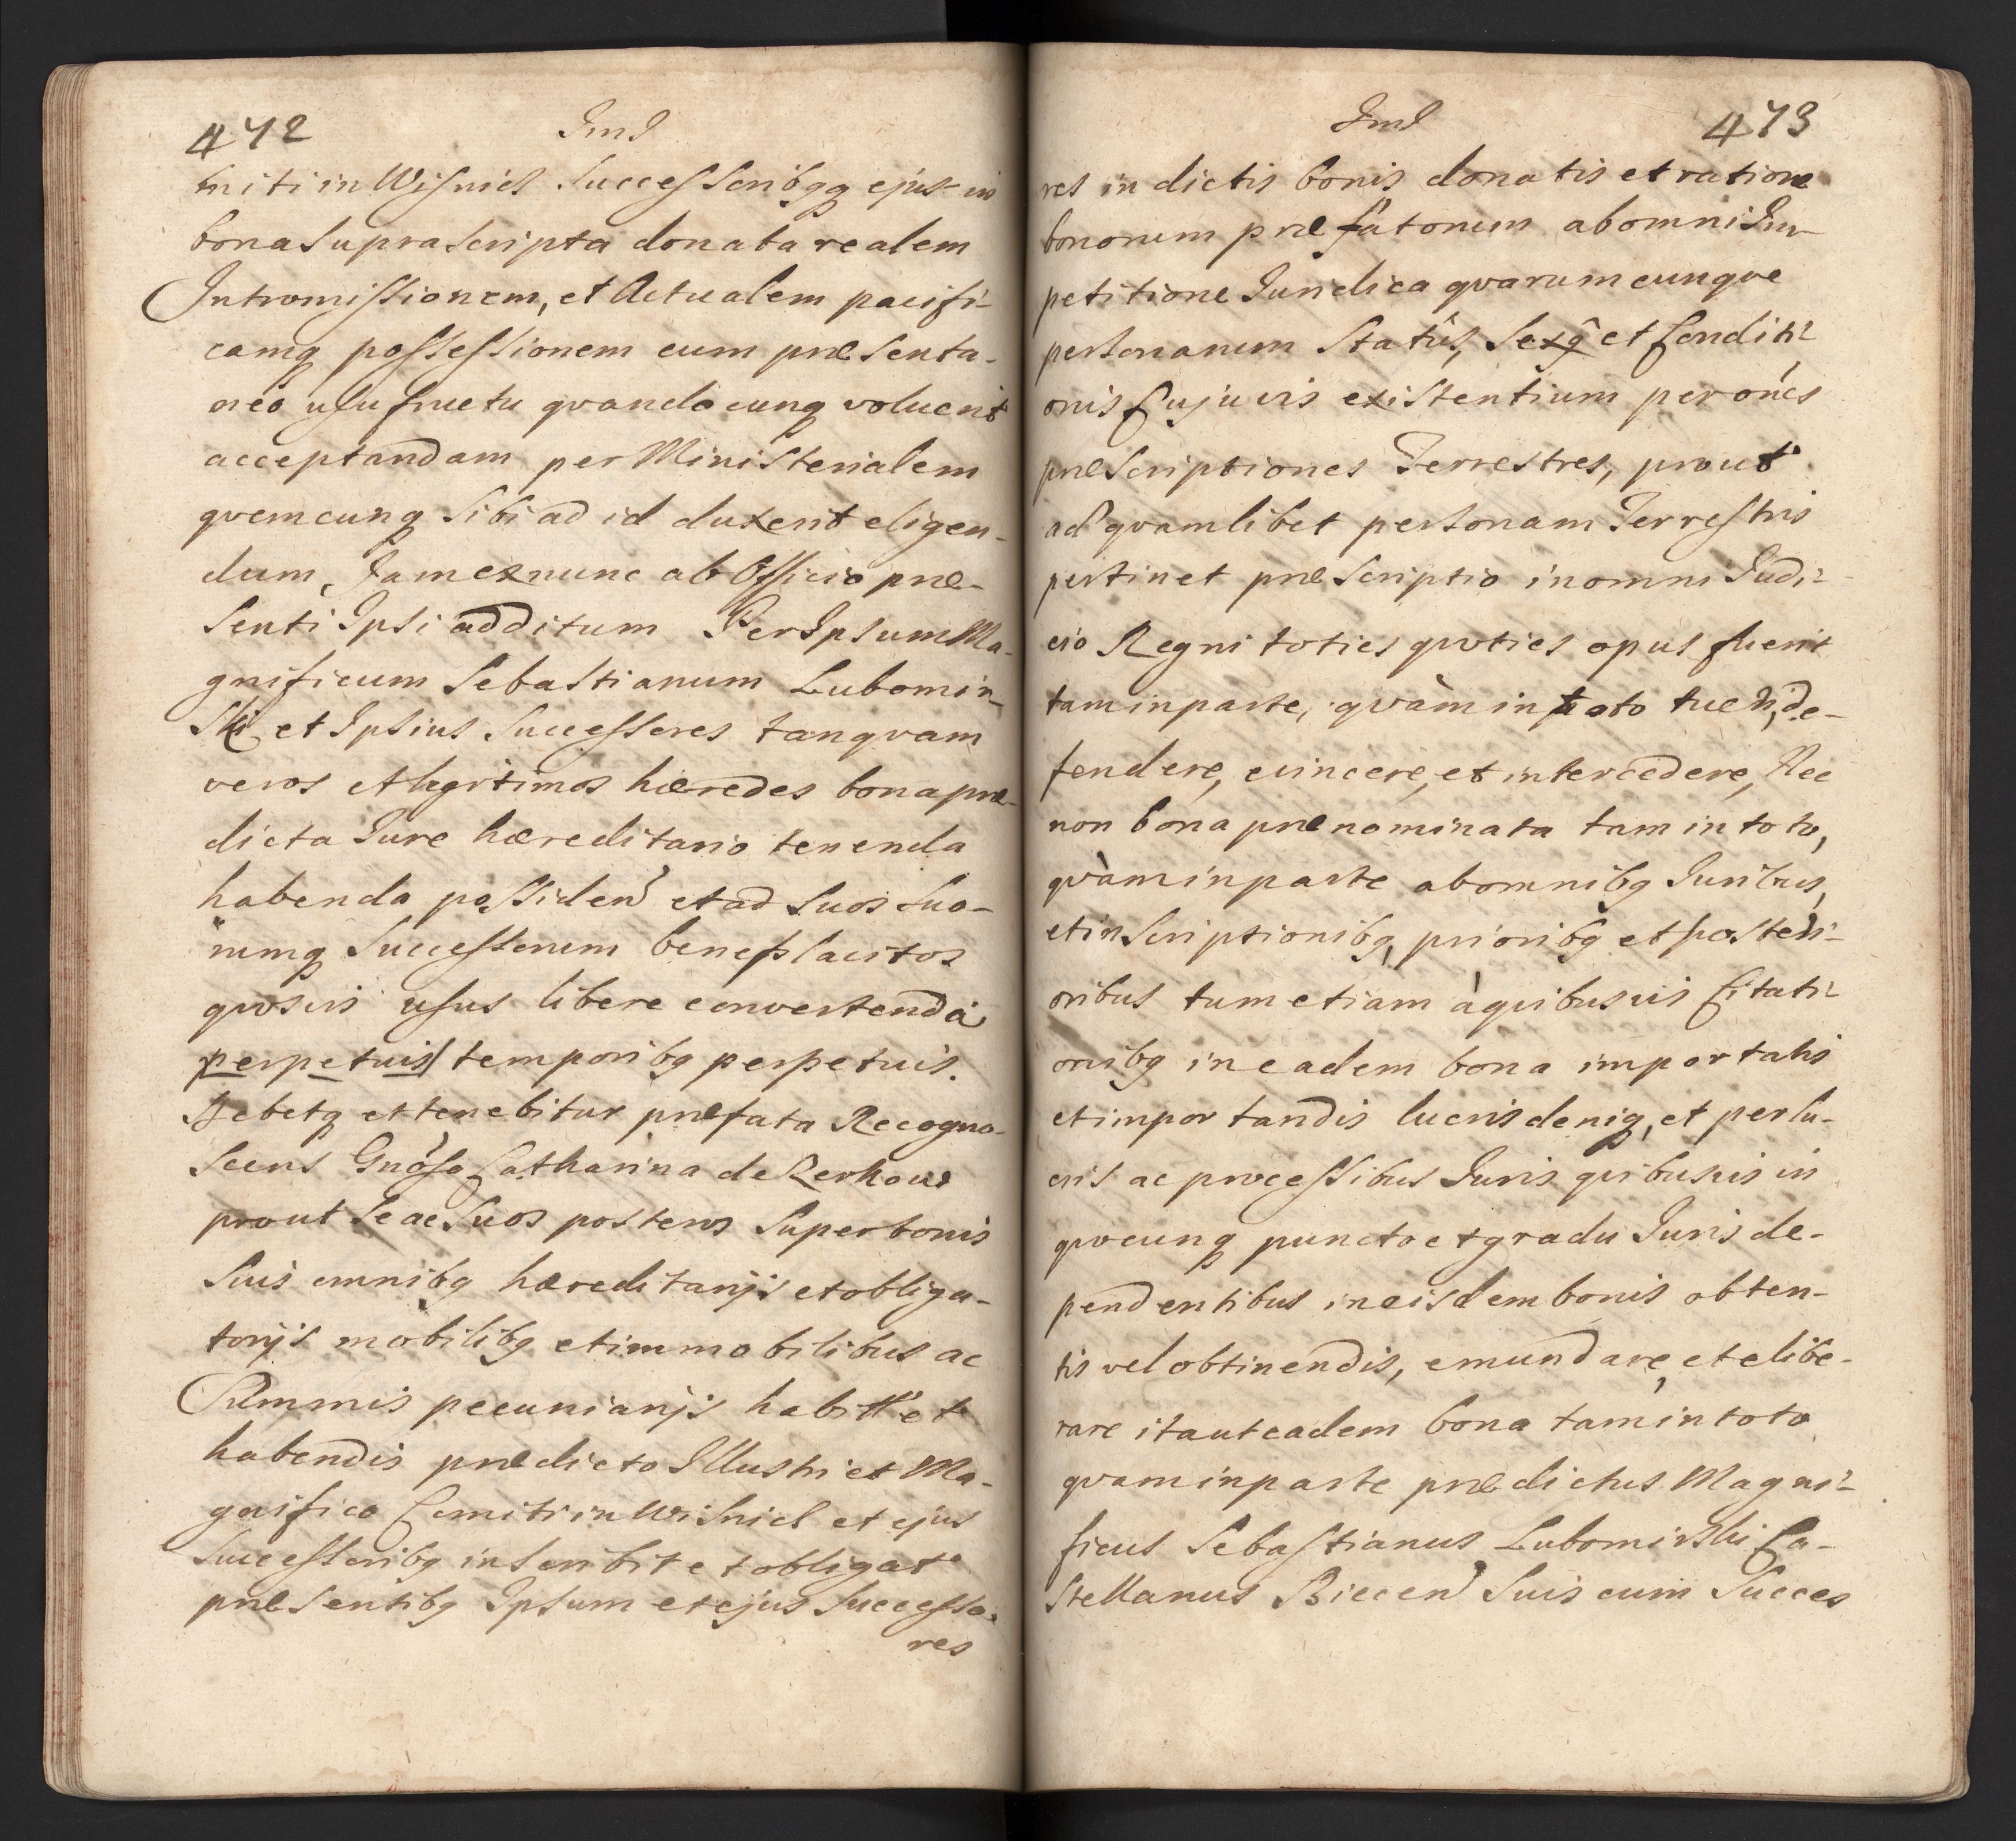 472 Jmd
miti in Wisnicz Successoribqq ejus in
bona Suprascripta donata realem
Intromissionem, et Actualem pacifi-
camq possessionem cum præsenta-
neo usufructu qvandocunq voluerit
acceptandam per Ministerialem
qvemcunq Sibi ad id duxerit eligen-
dum, Jam ex nunc ab Officio præ-
senti Ipsi additum Per Ipsum Ma-
gnificum Sebastianum Lubomir-
Ski et Ipsius Successores tanqvam
veros et legitimos hæredes bona præ-
dicta Jure hæreditario tenenda
habenda possidend et ad Suos Suo-
rumq Successorum beneplacitos
qvosvis usus libere convertenda
perpetuis temporibq perpetuis.
Debetq et tenebitur præfata Recogno-
scens Gnosa Catharina de
prout Se ac Suos posteros Super bonis
Suis omnibq hæreditarijs et obliga-
torijs mobilibq et immobilibus ac
Summis pecuniarijs habit et
habendis prædicto Illustri et Ma-
gnifico Comiti in Wisnicz et ejus
Successoribq inscribit et obligat
præsentibq Ipsum et ejus Successo-
res
Jmd 473
res in dictis bonis donatis et ratione
bonorum præfatorum ab omni Im-
petitione Juridica qvarumcunqve
personarum Statûs, Sexq et Conditi-
onis Cujusvis existentium per oñes
præscriptiones Terrestres, prout
ad qvamlibet personam Terrestris
pertinet præscriptio in omni Judi-
cio Regni toties qvoties opus fuerit
tam in parte, qvàm in toto tueri, de-
fendere, evincere, et intercedere, Nec
non bona prænominata tam in toto,
qvàm in parte ab omnibq Juribus,
et inscriptionibq, prioribq et posteri-
oribus tum etiam à qvibusvis Citati-
onibq in eadem bona importatis
et importandis lucris deniq, et perlu-
cris ac processibus Juris qvibusvis in
qvocunq puncto et gradu Juris de-
pendentibus in eisdem bonis obten-
tis vel obtinendis, emundare, et elibe-
rare ita ut eadem bona tam in toto
qvam in parte prædictus Magni-
ficus Sebastianus Lubomirski Ca-
stellanus Biecen Suis cum Succes